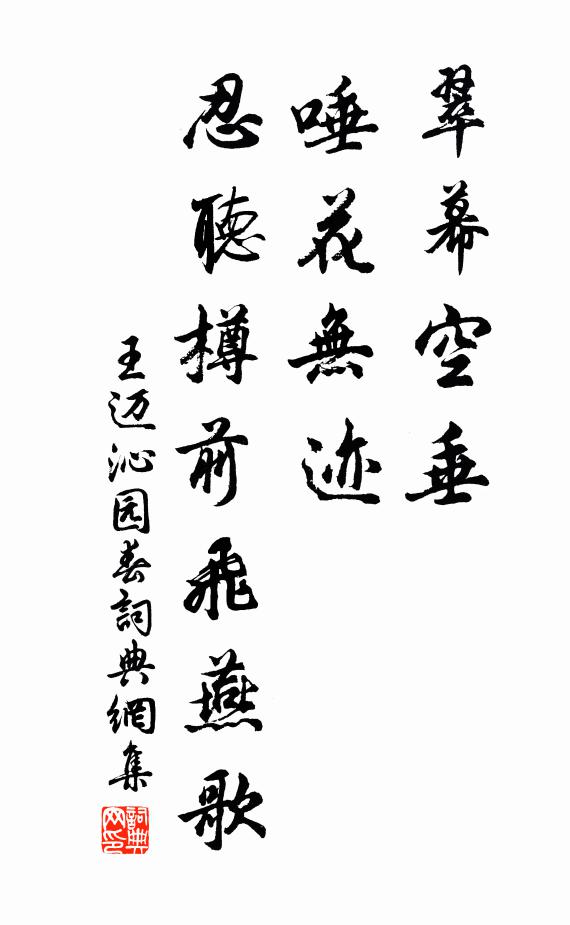 翠幕空垂
唾花無迹
忍聽樽前飛燕歌
王迈沁园春詞典網集
詞典网印